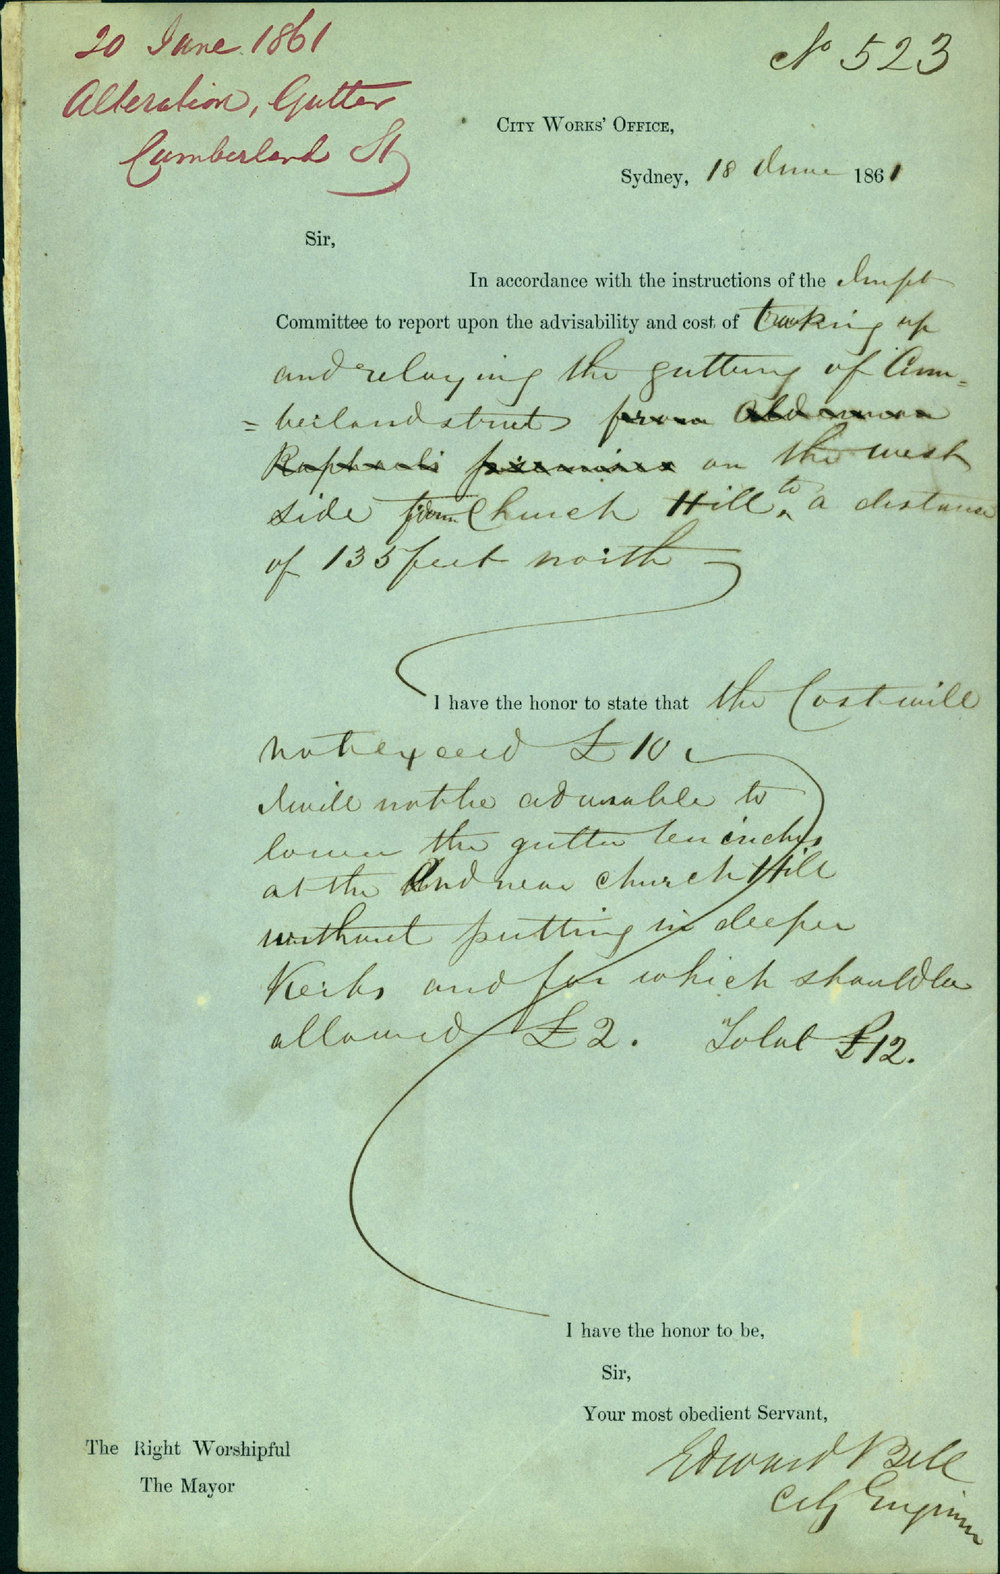 20 June 1861
Alteration, Gutter
Cumberland St
No 523
City Works' Office,
Sydney, 18 June 1861
Sir,
In accordance with the instructions of the Impt
Committee to report upon the advisability and cost of taking up
and relaying the guttering of Cum-
=berland street from Alderman
Raphaels premises on the west
side from Church Hill to a distance
of 135 feet north
I have the honor to state that the Cost will
not exceed £10
I will not be advisable to
lower the gutter ten inches
at the End near Church Hill
without putting in deeper
Kerbs and for which should be
allowed £2. Total £12.
I have the honor to be,
Sir,
Your most obedient Servant,
Edward Bell
City Engineer
The Right Worshipful
The Mayor